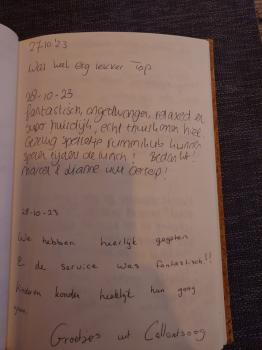 27-10-'23
Was heel erg lekker Top
28-10-23
Fantastisch, ongedwongen, relaxed en
super huiselijk, echt thuiskomen hier.
Gezellig spelletje rummikub kunnen
spelen tijdens de lunch! Bedankt!
Marcel & Dianne uit Gersep!
28-10-23
We hebben heerlijk gegeten
& de service was fantastisch!!
kinderen konden heerlijk hun gang
gaan.
Groetjes uit Callantsoog